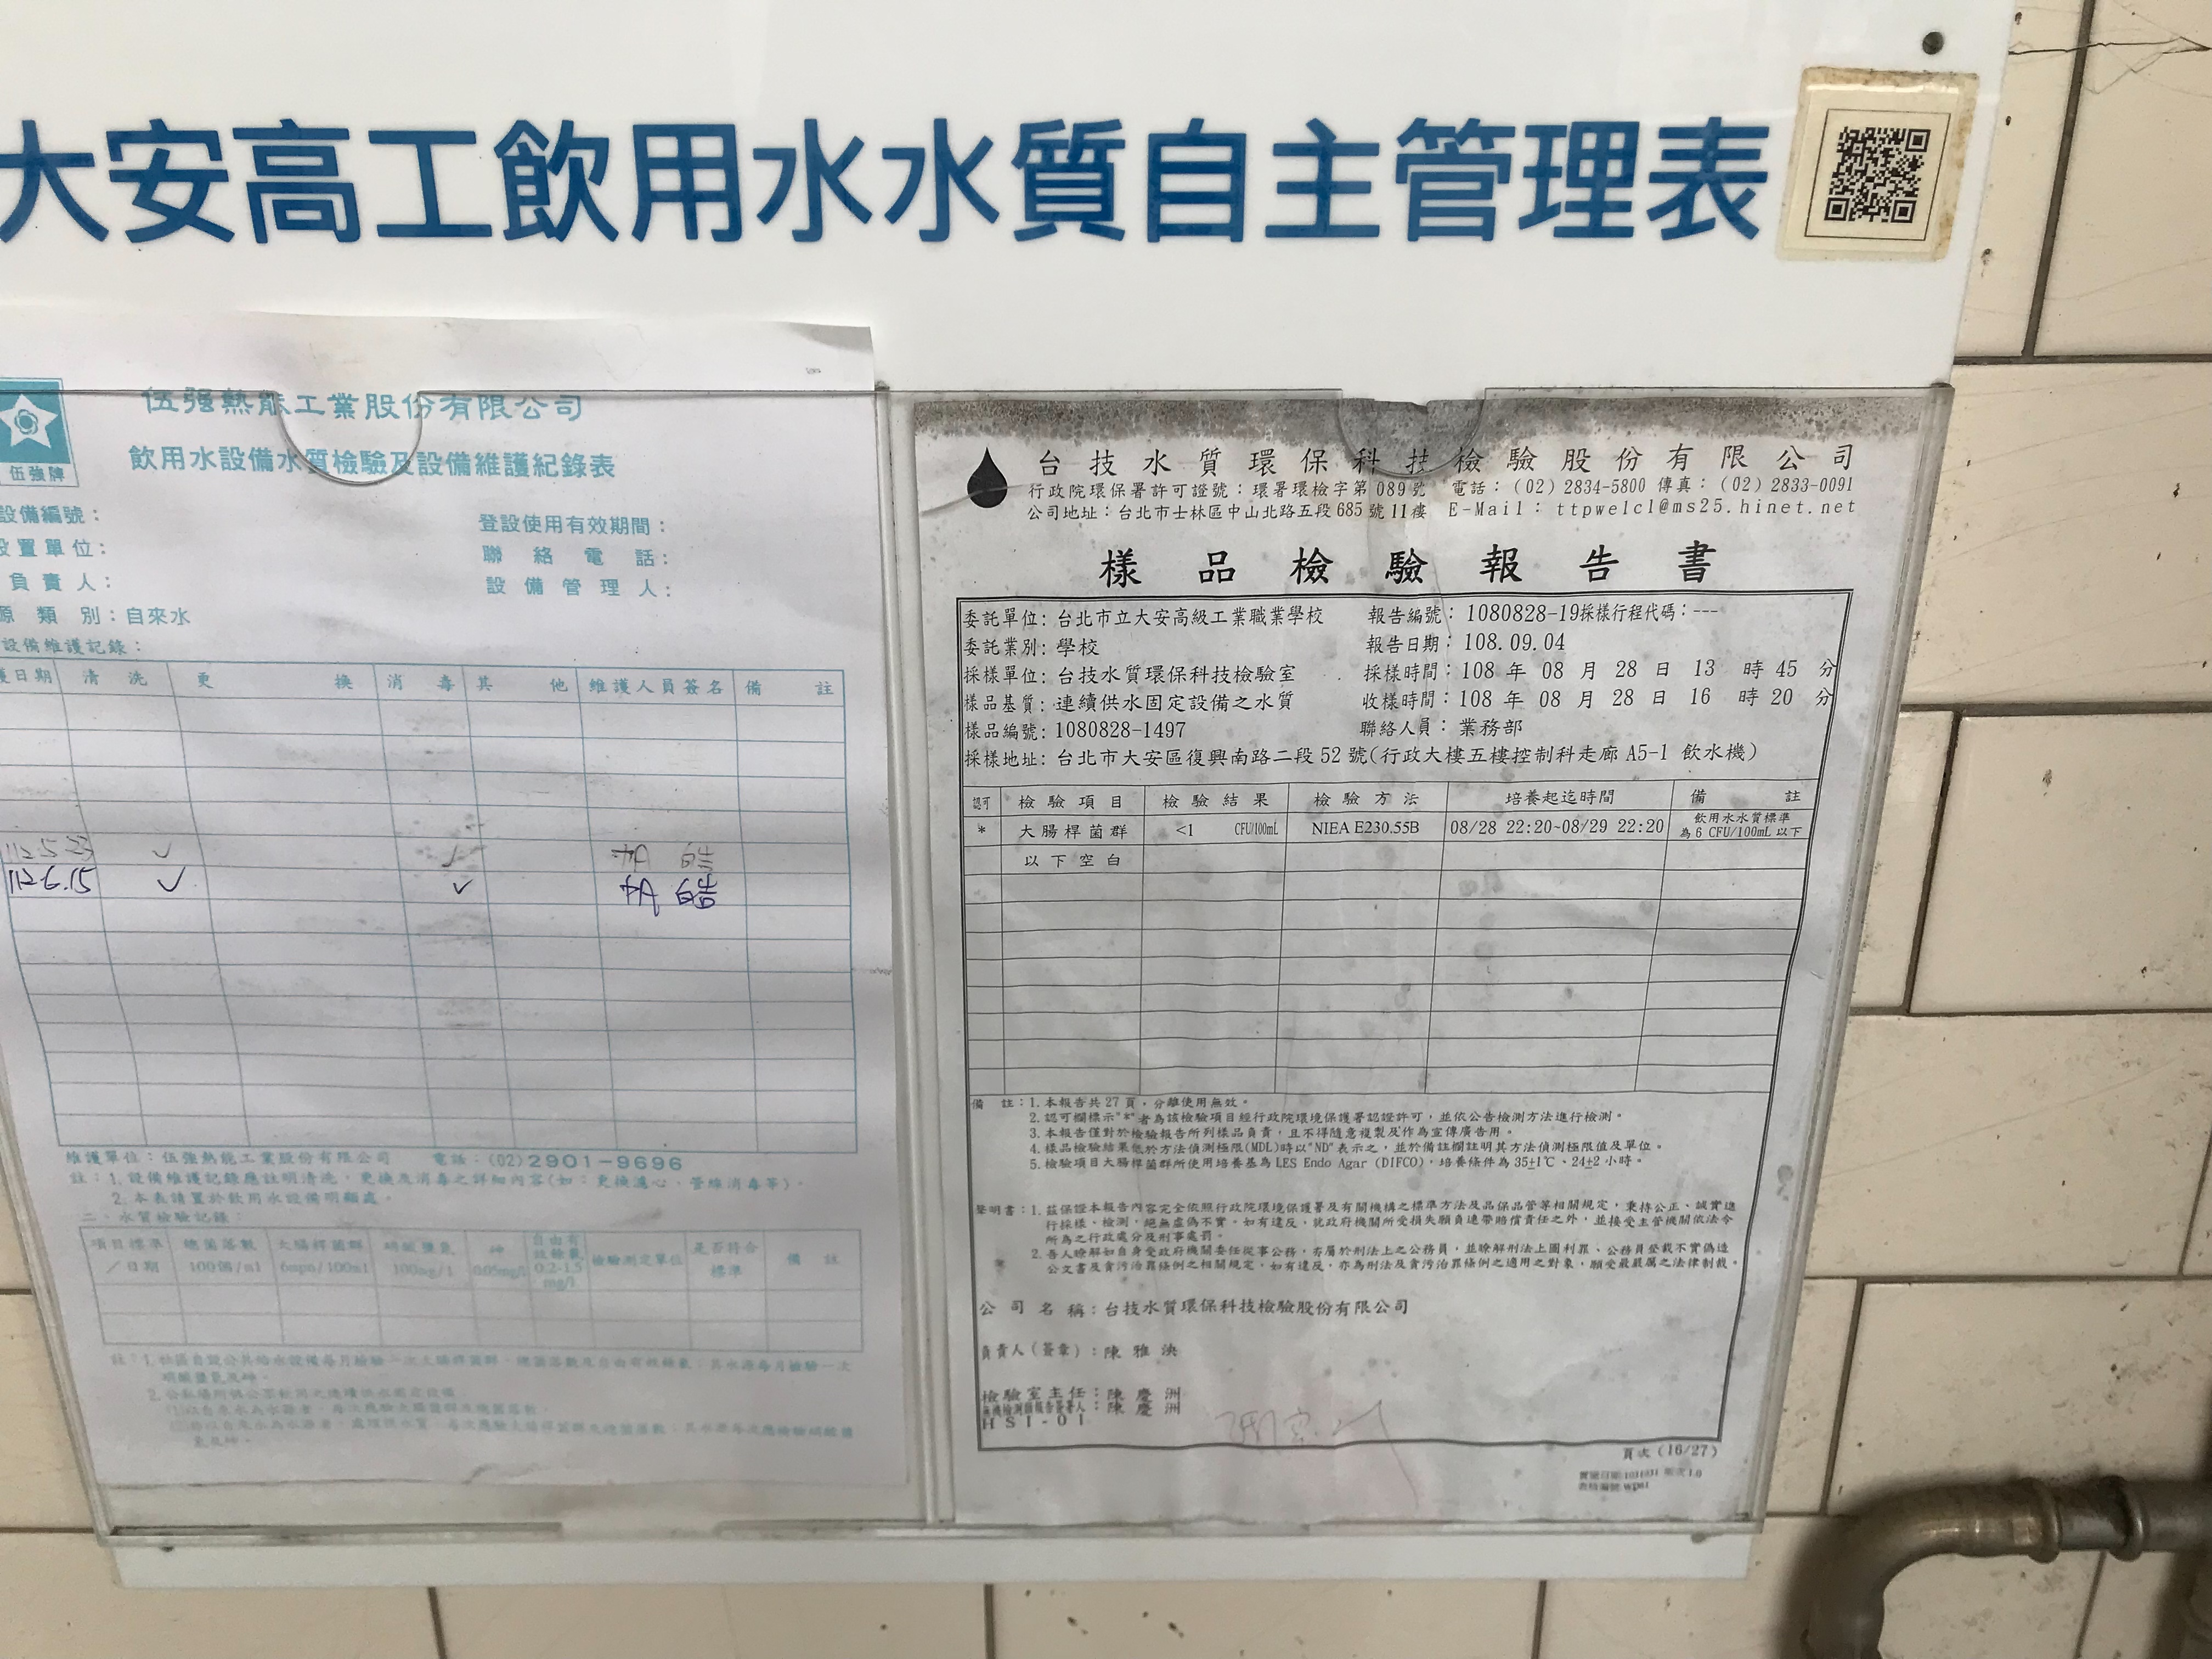 大安高工飲用水水質自主管理表
伍強熱能工業股份有限公司
飲用水設備水質檢驗及設備維護紀錄表
伍強牌
設備編號：
登設使用有效期間：
設置單位：
聯絡電話：
負責人：
設備管理人：
源類別：自來水
設備維護記錄：
護日期 清洗 更換 消毒 其他 維護人員簽名 備註
112.5.23 ✓ ✓
112.6.15 ✓ ✓
維護單位：伍強熱能工業股份有限公司 電話：(02)2901-9696
註：1. 設備維護記錄應註明清洗、更換及消毒之詳細內容(如：更換濾心、管維消毒等)。
2. 本表請置於飲用水設備明顯處。
二、水質檢驗記錄：
項目標準／日期 總菌落數100個/ml 大腸桿菌群6mpn/100ml 硝酸鹽氮100mg/l 砷0.05mg/l 自由有效餘氯0.2-1.5mg/l 檢驗測定單位 是否符合標準 備註
台技水質環保科技檢驗股份有限公司
行政院環保署許可證號：環署環檢字第089號 電話：(02)2834-5800 傳真：(02)2833-0091
公司地址：台北市士林區中山北路五段685號11樓 E-Mail：ttpwelcl@ms25.hinet.net
樣品檢驗報告書
委託單位：台北市立大安高級工業職業學校 報告編號：1080828-19採樣行程代碼：---
委託業別：學校 報告日期：108.09.04
採樣單位：台技水質環保科技檢驗室 採樣時間：108 年 08 月 28 日 13 時 45 分
樣品基質：連續供水固定設備之水質 收樣時間：108 年 08 月 28 日 16 時 20 分
樣品編號：1080828-1497 聯絡人員：業務部
採樣地址：台北市大安區復興南路二段52號(行政大樓五樓控制科走廊 A5-1 飲水機)
認可 檢驗項目 檢驗結果 檢驗方法 培養起迄時間 備註
* 大腸桿菌群 <1 CFU/100mL NIEA E230.55B 08/28 22:20~08/29 22:20 飲用水水質標準為 6 CFU/100mL 以下
以下空白
備註：1. 本報告共27頁，分離使用無效。
2. 認可欄標示"*"者為該檢驗項目經行政院環境保護署認證許可，並依公告檢測方法進行檢測。
3. 本報告僅對於檢驗報告所列樣品負責，且不得隨意複製及作為宣傳廣告用。
4. 樣品檢驗結果低於方法偵測極限(MDL)時以"ND"表示之，並於備註欄註明其方法偵測極限值及單位。
5. 檢驗項目大腸桿菌群所使用培養基為 LES Endo Agar (DIFCO)，培養條件為 35±1℃、24±2 小時。
聲明書：1. 茲保證本報告內容完全依照行政院環境保護署及有關機構之標準方法及品保品管等相關規定，秉持公正、誠實進
行採樣、檢測，絕無虛偽不實，如有違反，就政府機關所受損失願負連帶賠償責任之外，並接受主管機關依法令
所為之行政處分及刑事處罰。
2. 吾人瞭解如自身受政府機關委任從事公務，亦屬於刑法上之公務員，並瞭解刑法上圖利罪、公務員登載不實偽造
公文書及貪污治罪條例之相關規定，如有違反，亦為刑法及貪污治罪條例之適用之對象，願受最嚴厲之法律制裁。
公司名稱：台技水質環保科技檢驗股份有限公司
負責人(簽章)：陳雅泱
檢驗室主任：陳慶洲
無機檢測類報告簽署人：陳慶洲
HSI-01
頁次(16/27)